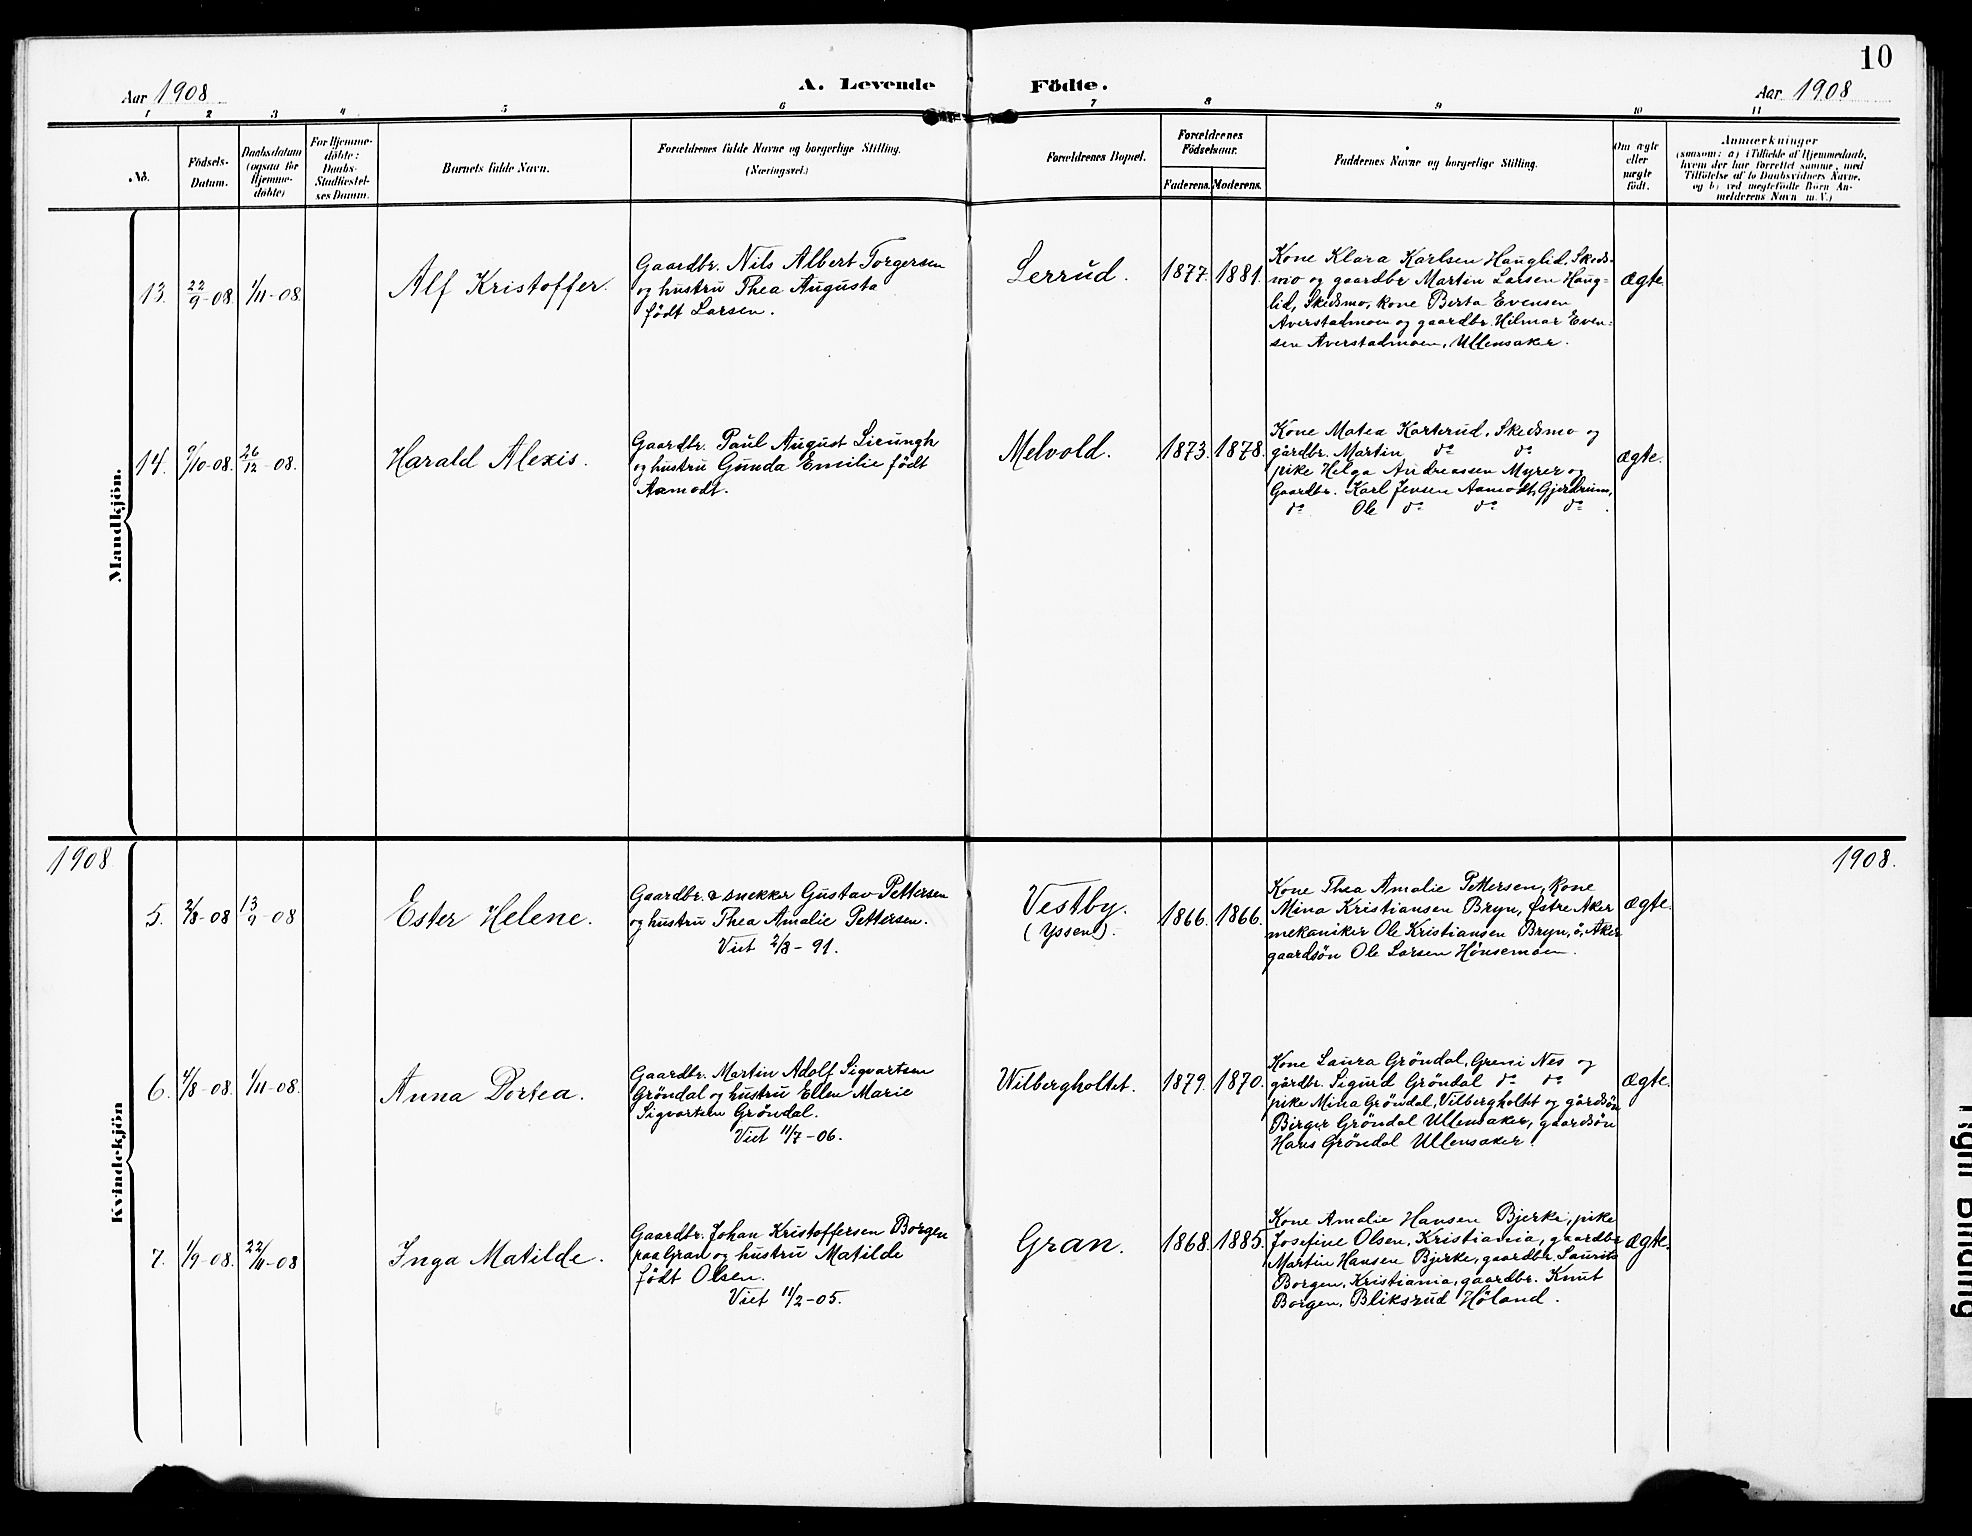 10
Aar 1908
A. Levende Födte.
Aar 1908
1 2 3 4 5 6 7 8 9 10 11
No.
Födsels-
Datum.
Daabsdatum
(ogsaa for
Hjemme-
döbte)
For Hjemme-
döbte:
Daabs-
Stadfæstel-
ses Datum.
Barnets fulde Navn.
Forældrenes fulde Navne og borgerlige Stilling.
(Næringsvei.)
Forældrenes Bopæl.
Forældrenes
Födselsaar.
Faderens. Moderens.
Faddernes Navne og borgerlige Stilling.
Om ægte
eller
uægte
födt.
Anmærkninger
(saasom: a) i Tilfælde af Hjemmedaab,
hvem der har forrettet samme, med
Tilföielse af to Daabsvidners Navne,
og b) ved uægtefödte Börn An-
melderens Navn m. V.)
Mandkjön.
13.
22/9-08.
1/11-08.
Alf Kristoffer.
Gaardbr. Nils Albert Torgersen
og hustru Thea Augusta
födt Larsen.
Lerrud.
1877. 1881.
Kone Klara Karlsen Hauglid, Skeds-
mo og gaardbr Martin Larsen Haug-
lid, Skedsmo, kone Berta Evensen
Averstadmoen og gaardbr. Hilmar Even-
sen Averstadmoen, Ullensaker.
ægte
14.
9/10-08.
26/12-08.
Harald Alexis.
Gaardbr. Paul August Lirungh
og hustru Gunda Emilie födt
Aamodt.
Melvold.
1873. 1878.
Kone Matea Karterud, Skedsmo og
gårdbr. Martin do do
pike Helga Andreassen Myrer og
Gaardbr. Karl Jensen Aamodt, Gjerdrum,
do Ole do do do.
ægte.
1908
1908.
Kvindekjön
5.
2/8-08
13/9-08
Ester Helene.
Gaardbr. & snekker Gustav Pettersen
og hustru Thea Amalie Pettersen.
Viet 2/8-91.
Vestby.
(Yssen).
1866. 1866.
Kone Thea Amalie Pettersen, kone
Mina Kristiansen Bryn, Østre Aker
mekaniker Ole Kristiansen Bryn, ö, Aker
gaardsön Ole Larsen Hönsemoen.
ægte.
6.
4/8-08.
1/11-08.
Anna Dortea.
Gaardbr. Martin Adolf Sigvartsen
Gröndal og hustru Ellen Marie
Sigvartsen Gröndal.
Viet 11/7-06.
Wilbergholtet.
1879. 1870.
Kone Laura Gröndal, Greni Nes og
gårdbr. Sigurd Gröndal do do
pike Mina Gröndal, Vilbergholtet og gårdsön
Birger Gröndal Ullensaker, gaardsön
Hans Gröndal Ullensaker.
ægte.
7.
1/9-08.
22/11-08
Inga Matilde.
Gaardbr. Johan Kristoffersen Borgen
paa Gran og hustru Matilde
födt Olsen.
Viet 11/2-05.
Gran.
1868. 1885.
Kone Amalie Hansen Bjerke, pike
Josefine Olsen, Kristiania, gaardbr
Martin Hansen Bjerke, gaardbr. Laurits
Borgen, Kristiania, gaardbr. Knut
Borgen, Bliksrud Höland.
ægte.